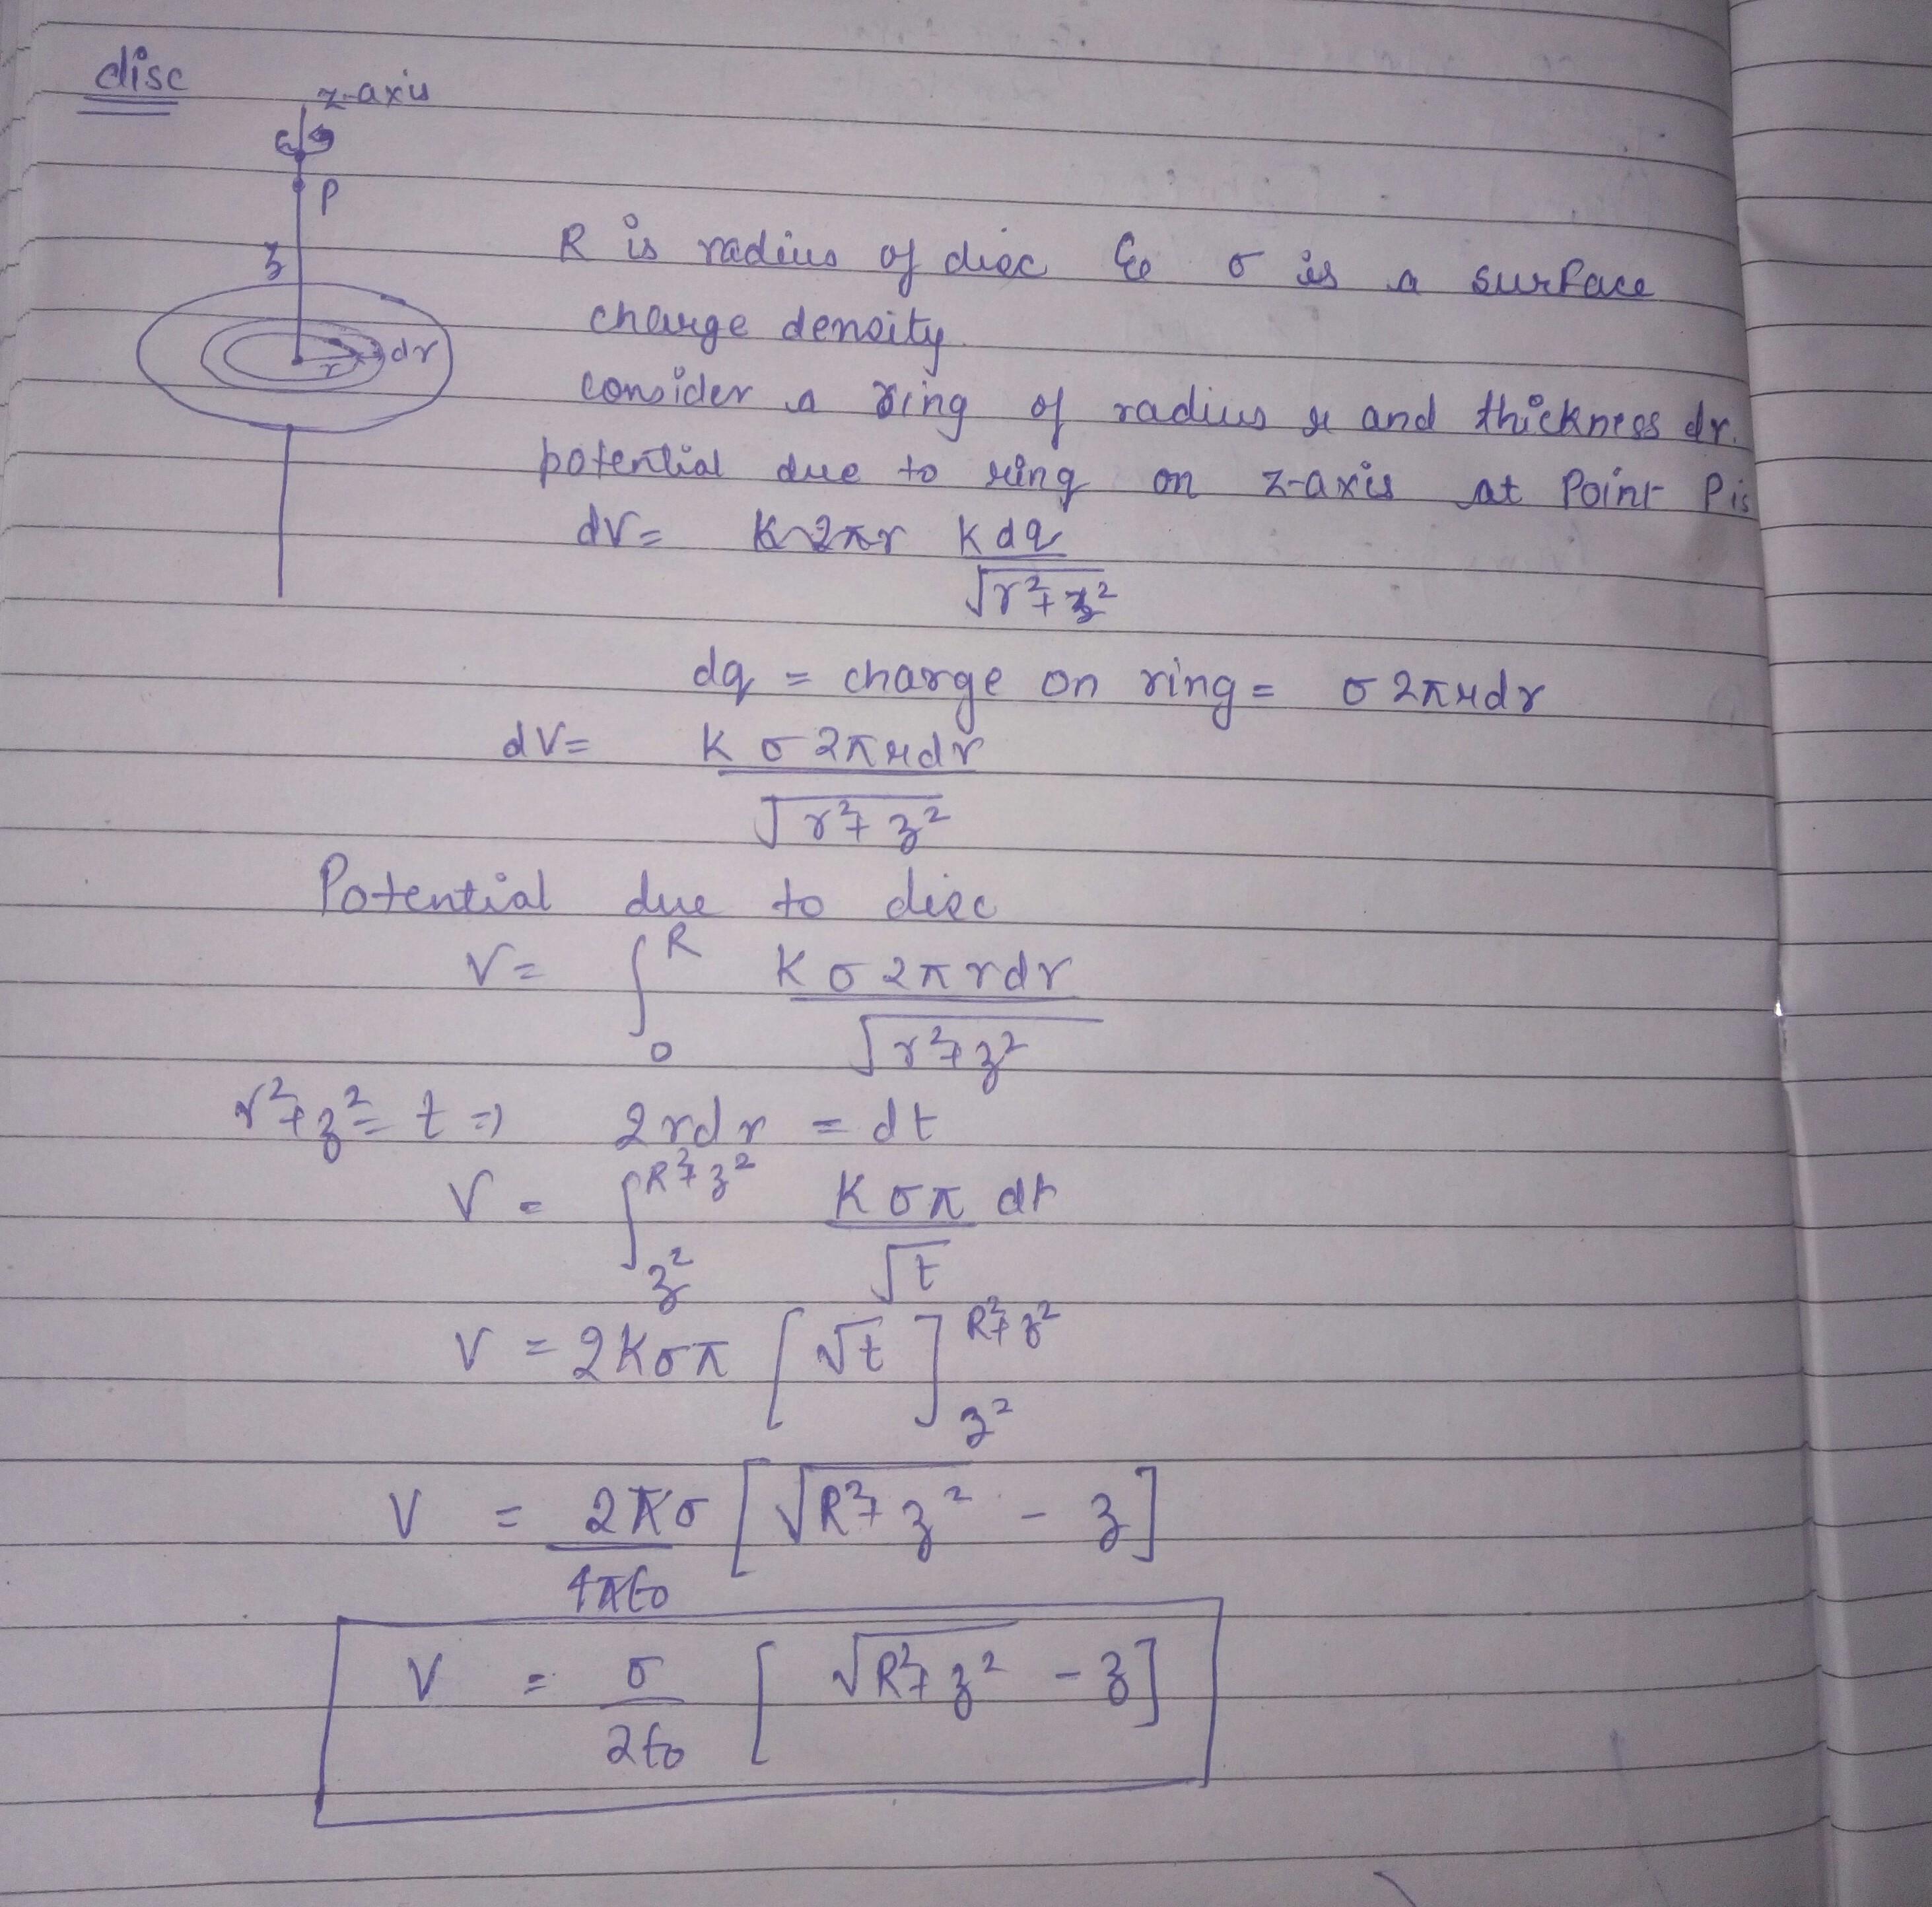 disc
z-axis
P
z
r dr
R is radius of disc & σ is a surface
charge density.
consider a ring of radius r and thickness dr.
potential due to ring on z-axis at Point P is
dV = K 2πr K dq / √(r²+z²)
dq = charge on ring = σ 2πrdr
dV = K σ 2πrdr / √(r²+z²)
Potential due to disc
V = ∫₀ᴿ K σ 2π rdr / √(r²+z²)
r²+z² = t ⇒ 2rdr = dt
V = ∫_{z²}^{R²+z²} Kσπ dt / √t
V = 2Kσπ [√t]_{z²}^{R²+z²}
V = 2πσ / 4πε₀ [√(R²+z²) - z]
V = σ / 2ε₀ [√(R²+z²) - z]